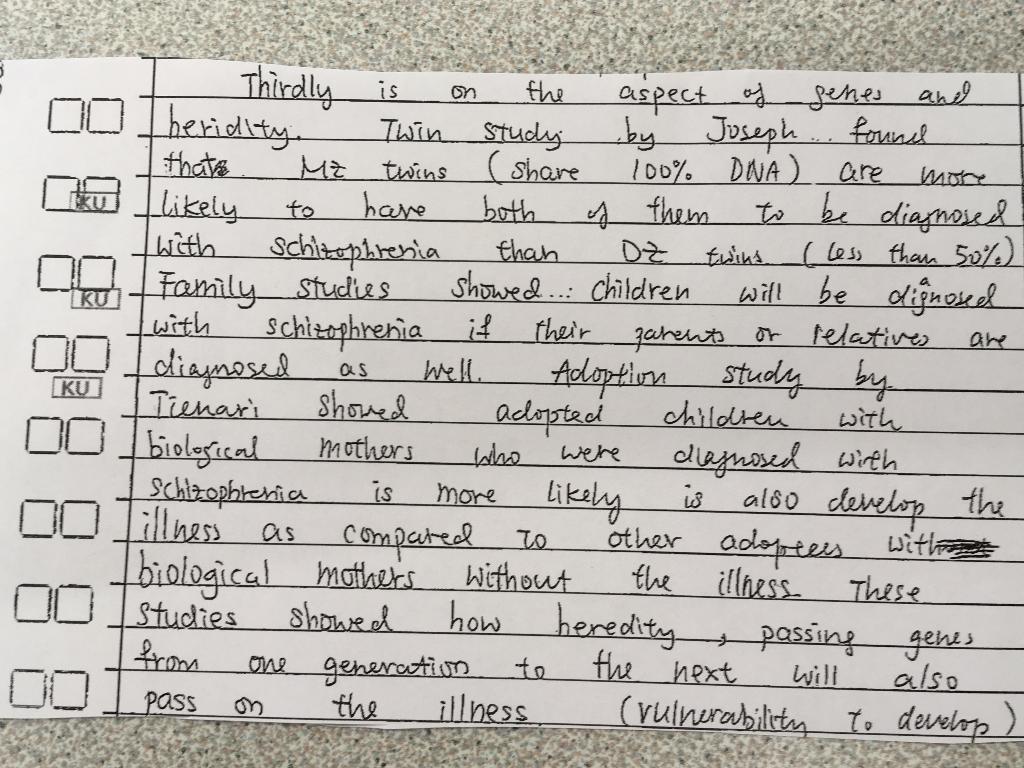 Thirdly is on the aspect of genes and
heridity. Twin study by Joseph... found
that MZ twins (share 100% DNA) are more
KU
likely to have both of them to be diagnosed
with schizophrenia than DZ twins (less than 50%)
KU
Family studies showed...: children will be diagnosed
with schizophrenia if their parents or relatives are
KU
diagnosed as well. Adoption study by
Tienari showed adopted children with
biological mothers who were diagnosed with
schizophrenia is more likely is also develop the
illness as compared to other adoptees with
biological mothers without the illness. These
studies showed how heredity, passing genes
from one generation to the next will also
pass on the illness (vulnerability to develop)